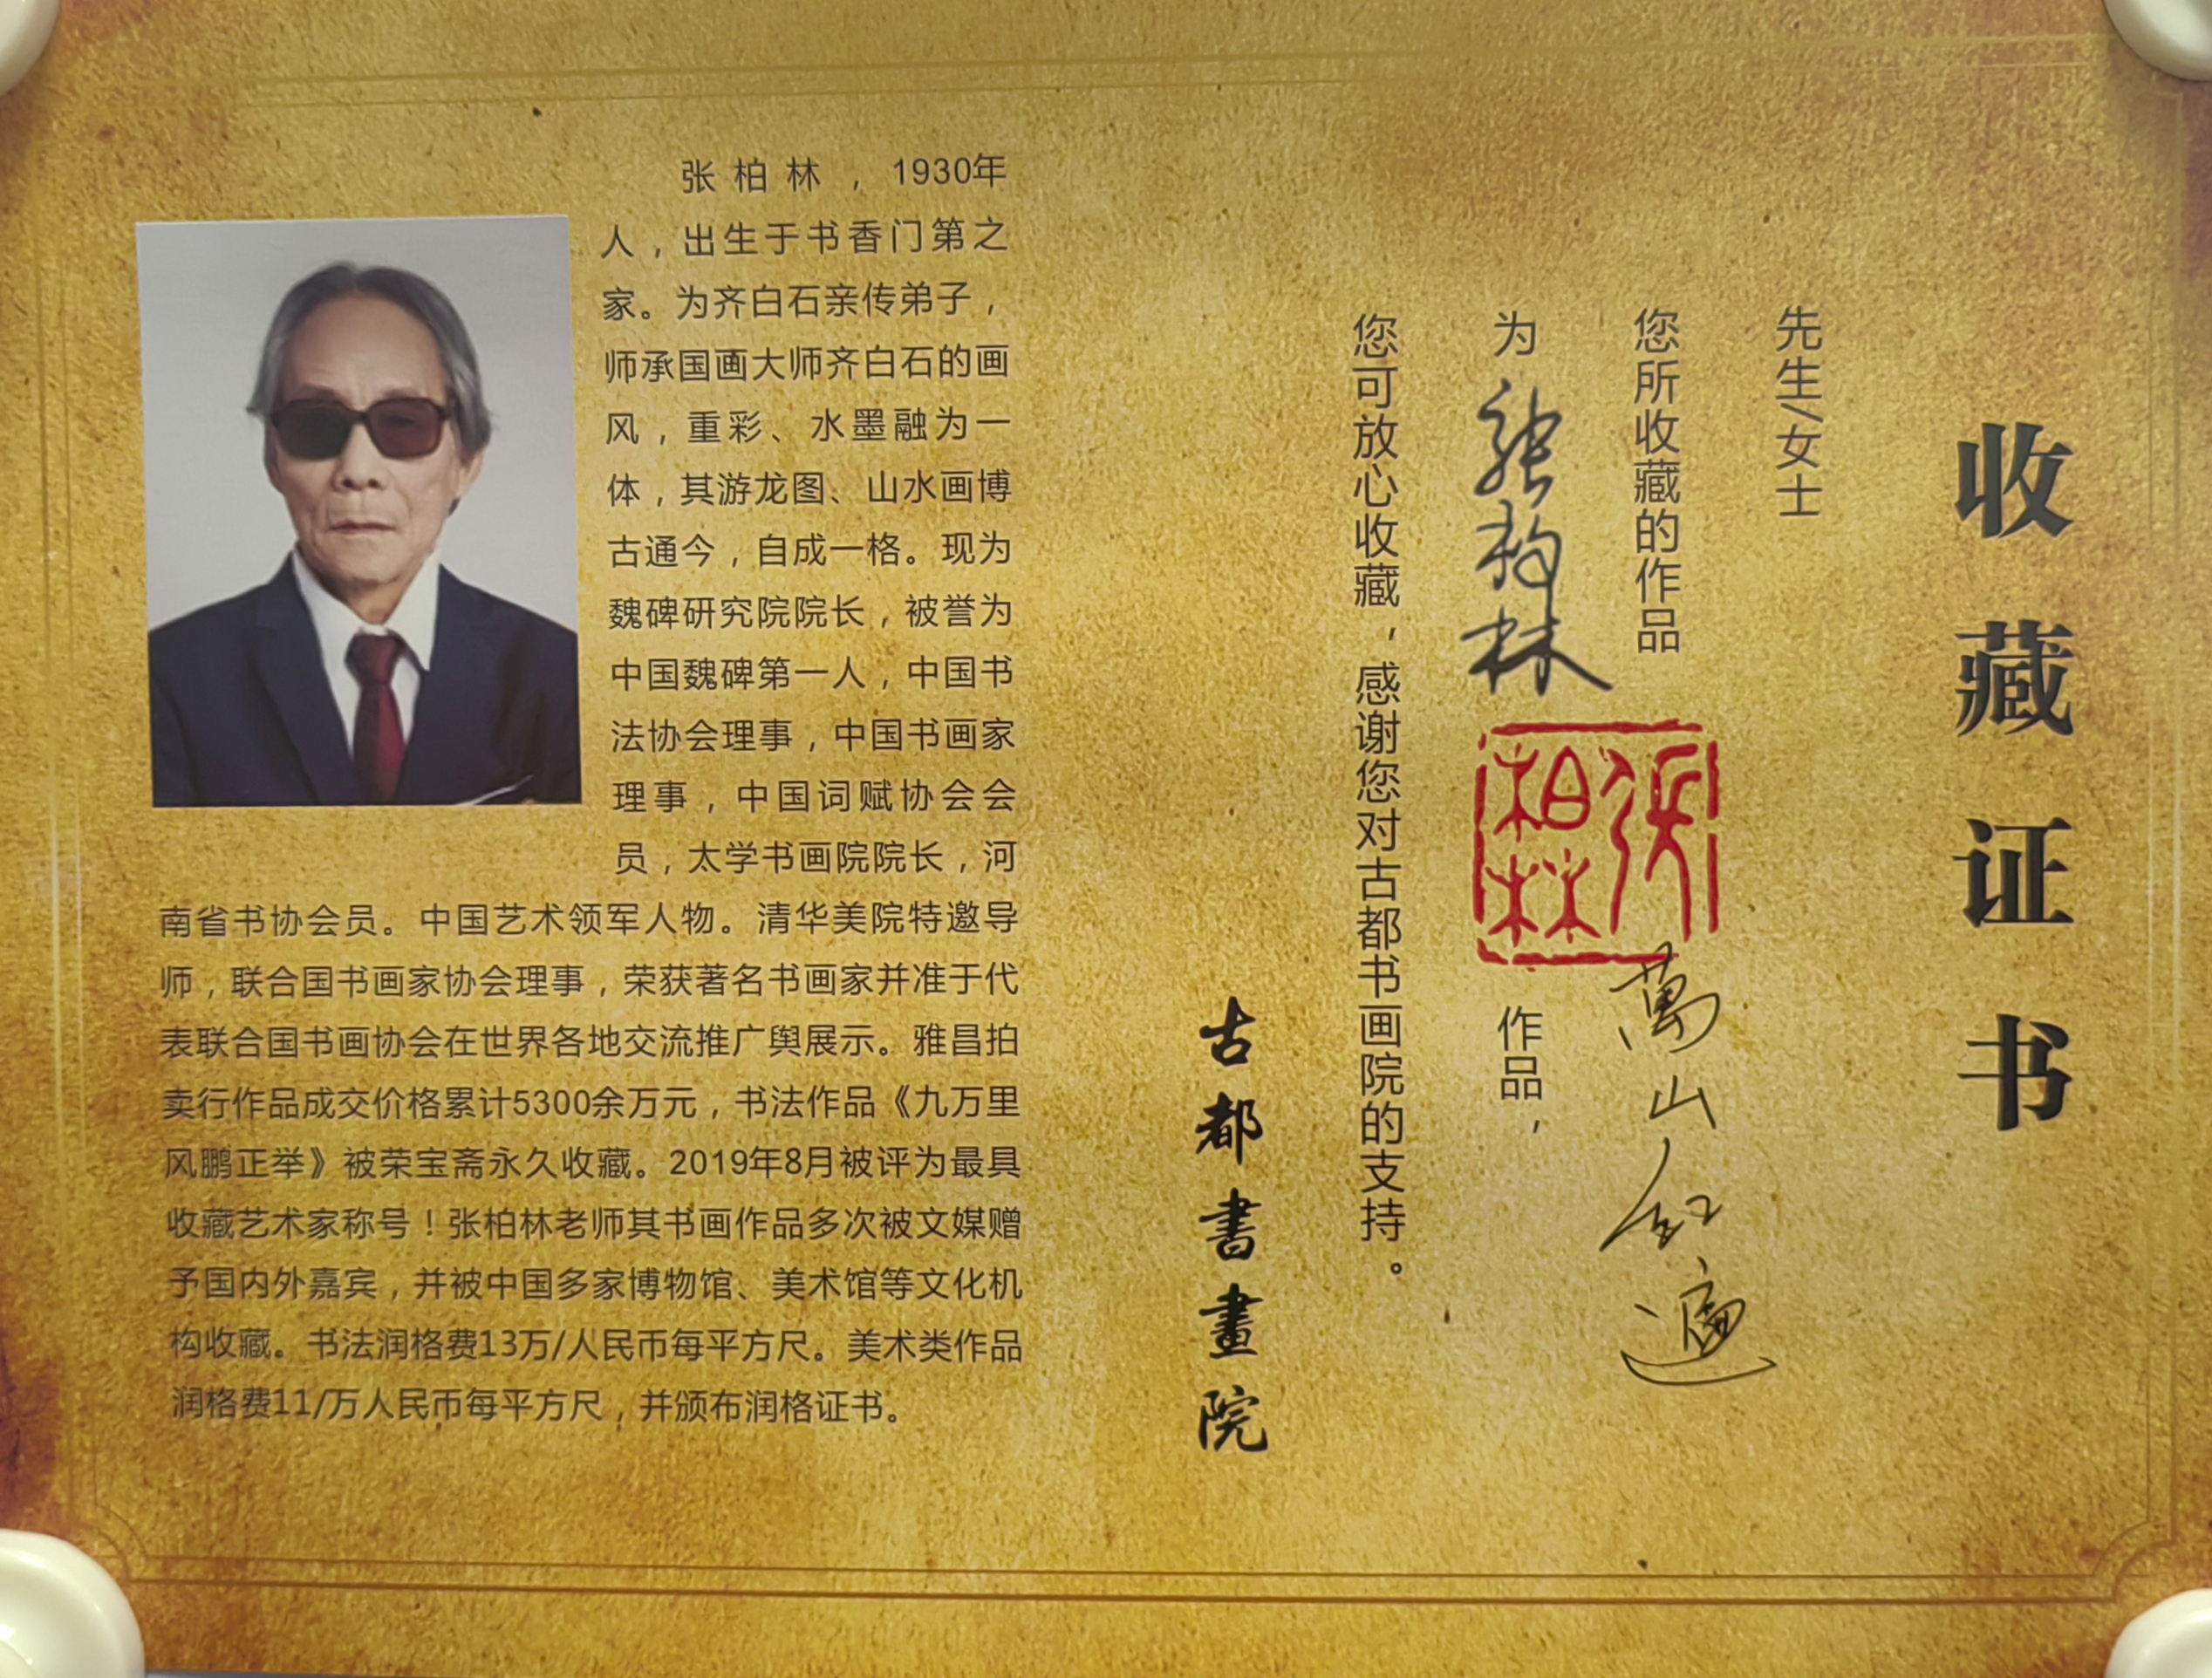 收藏证书
先生/女士
您所收藏的作品
萬山红遍
为
张柏林
张柏林
作品，
您可放心收藏，感谢您对古都书画院的支持。
古都書畫院
张柏林，1930年
人，出生于书香门第之
家。为齐白石亲传弟子，
师承国画大师齐白石的画
风，重彩、水墨融为一
体，其游龙图、山水画博
古通今，自成一格。现为
魏碑研究院院长，被誉为
中国魏碑第一人，中国书
法协会理事，中国书画家
理事，中国词赋协会会
员，太学书画院院长，河
南省书协会员。中国艺术领军人物。清华美院特邀导
师，联合国书画家协会理事，荣获著名书画家并准于代
表联合国书画协会在世界各地交流推广舆展示。雅昌拍
卖行作品成交价格累计5300余万元，书法作品《九万里
风鹏正举》被荣宝斋永久收藏。2019年8月被评为最具
收藏艺术家称号！张柏林老师其书画作品多次被文媒赠
予国内外嘉宾，并被中国多家博物馆、美术馆等文化机
构收藏。书法润格费13万/人民币每平方尺。美术类作品
润格费11/万人民币每平方尺，并颁布润格证书。